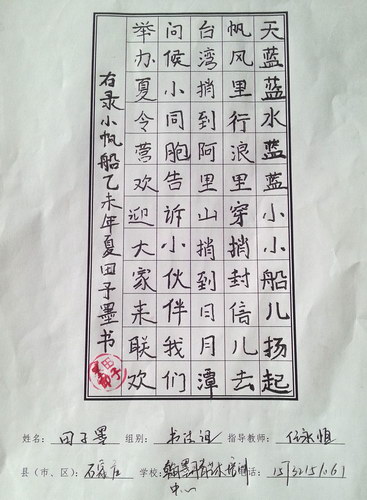 天蓝蓝水蓝蓝小小船儿扬起
帆风里行浪里穿捎封信儿去
台湾捎到阿里山捎到日月潭
问候小同胞告诉小伙伴我们
举办夏令营欢迎大家来联欢
右录小帆船乙未年夏田子墨书
姓名：田子墨 组别：书法组 指导教师：
县（市、区）： 学校： 电话：
中心